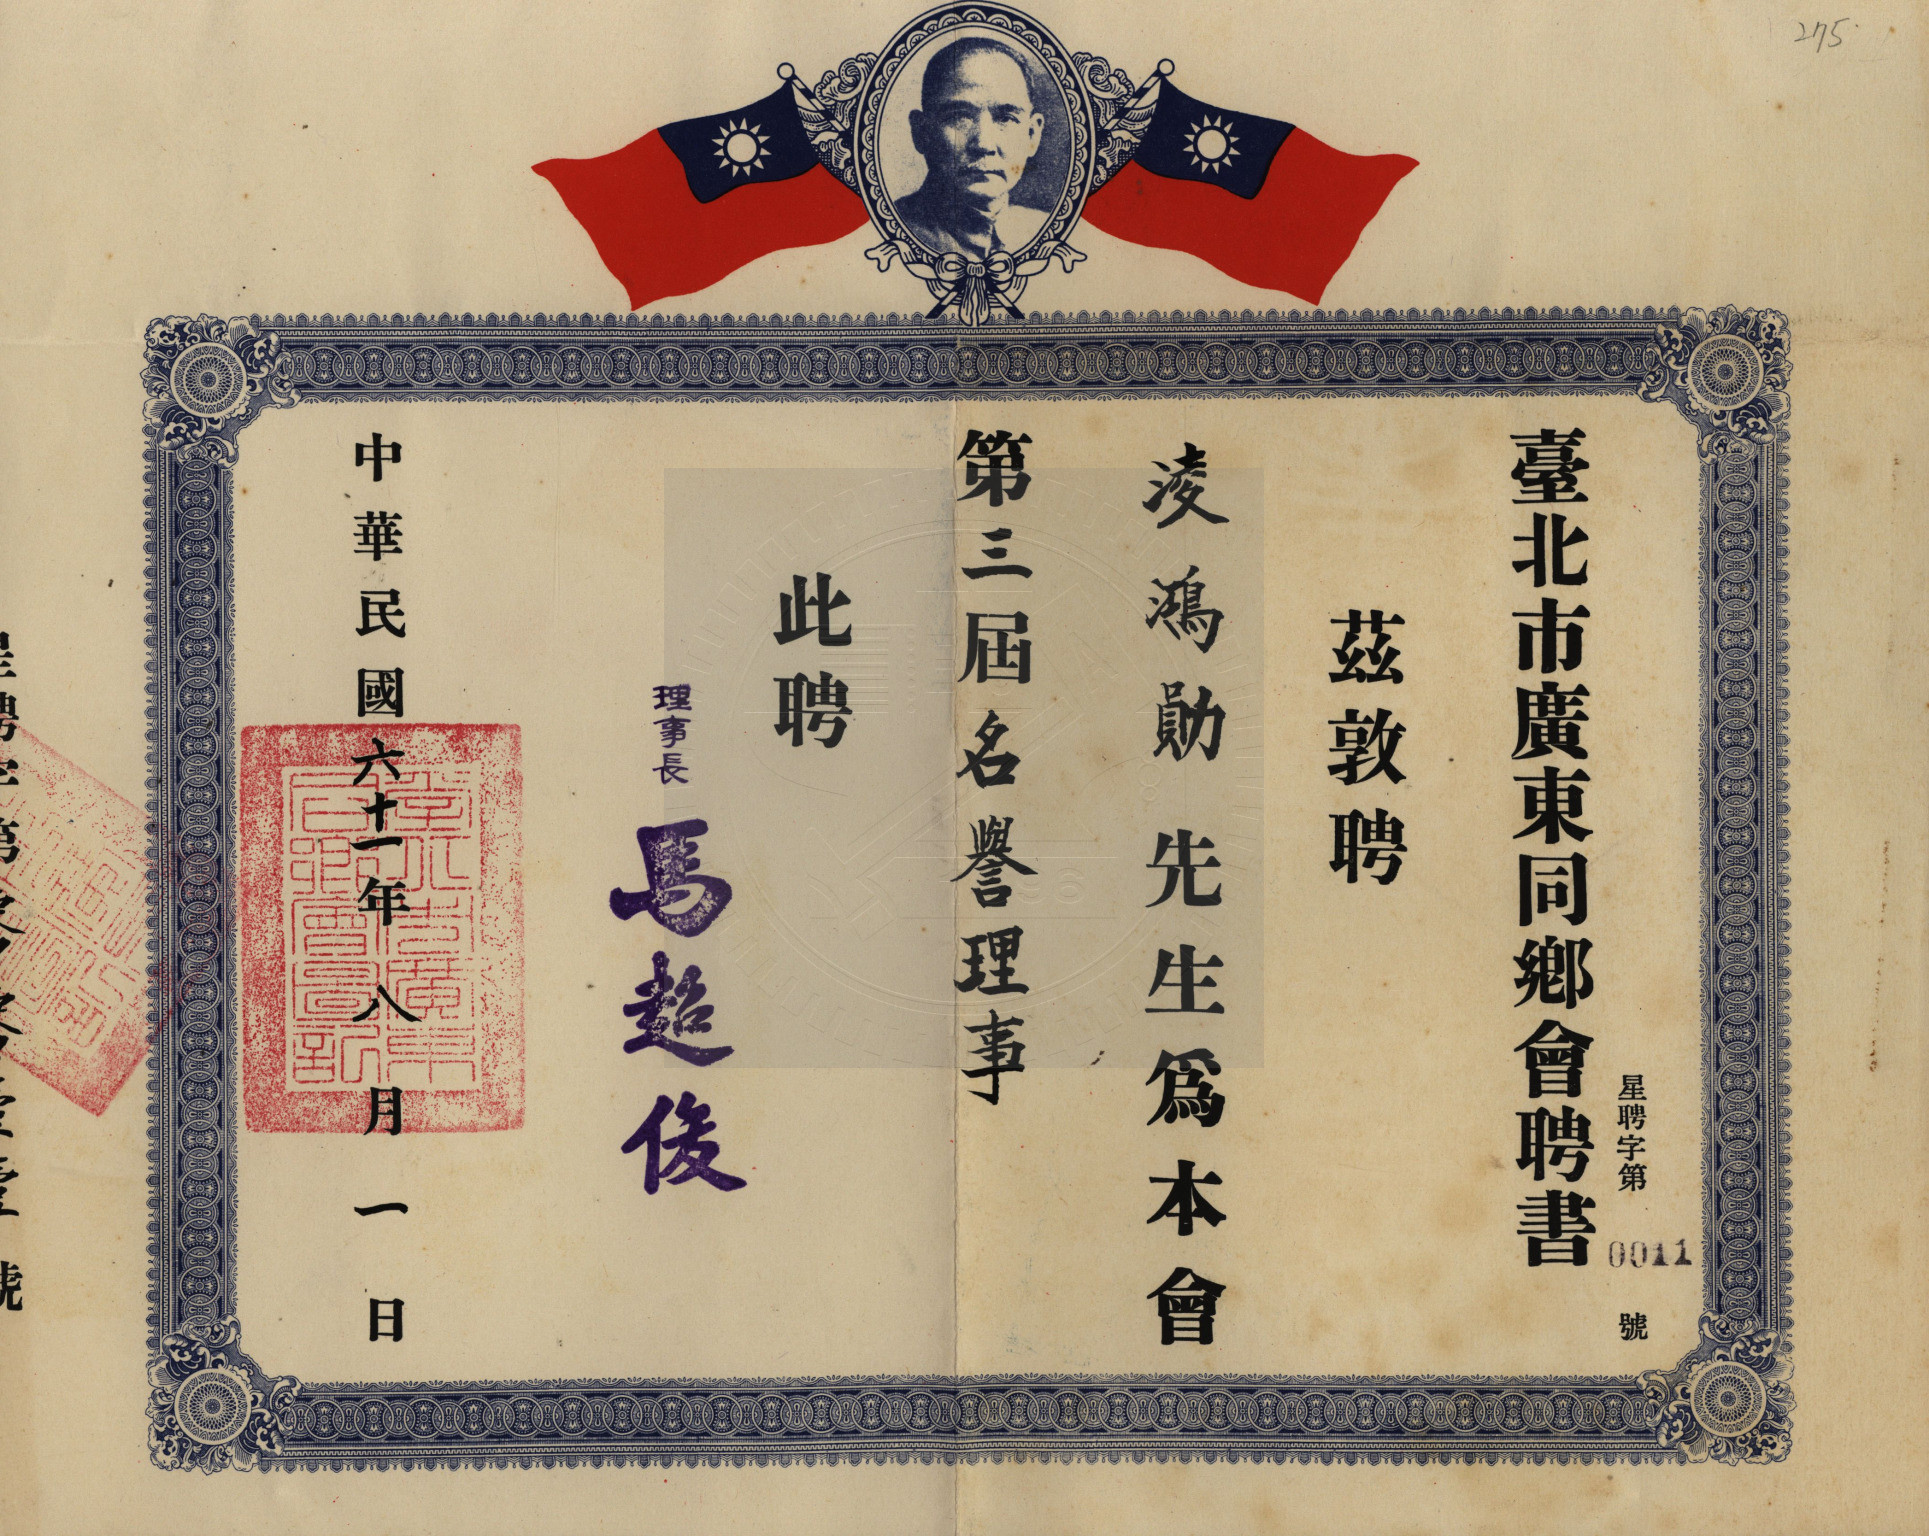 275
臺北市廣東同鄉會聘書
星聘字第0011號
茲敦聘
淩鴻勛先生為本會
第三屆名譽理事
此聘
理事長 馬超俊
中華民國六十一年八月一日
臺北市廣東
同鄉會圖記